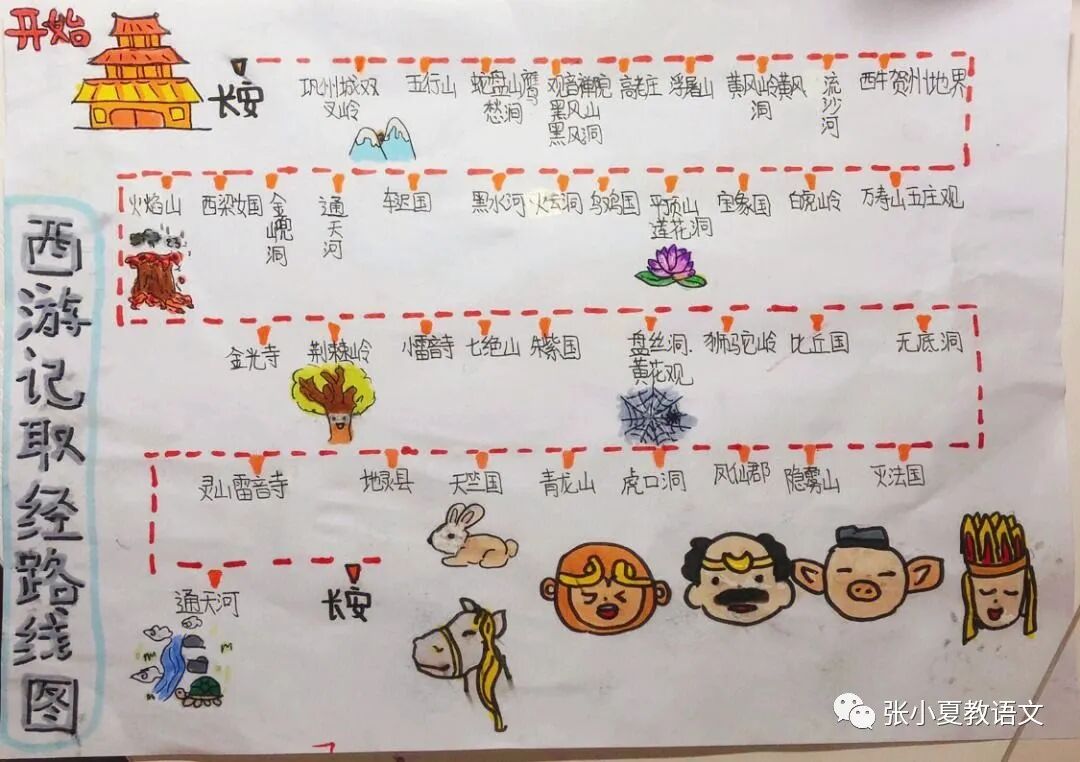 开始
西游记取经路线图
长安
巩州城双
叉岭
五行山
蛇盘山鹰
愁涧
观音禅院
黑风山
黑风洞
高老庄
浮屠山
黄风岭黄风
洞
流沙河
西牛贺州地界
火焰山
西梁女国
金
洞
通天河
车迟国
黑水河
火云洞
乌鸡国
平顶山
莲花洞
宝象国
白虎岭
万寿山五庄观
金光寺
荆棘岭
小雷音寺
七绝山
朱紫国
盘丝洞.
黄花观
狮驼岭
比丘国
无底洞
灵山雷音寺
地灵县
天竺国
青龙山
虎口洞
凤仙郡
隐雾山
灭法国
通天河
长安
张小夏教语文